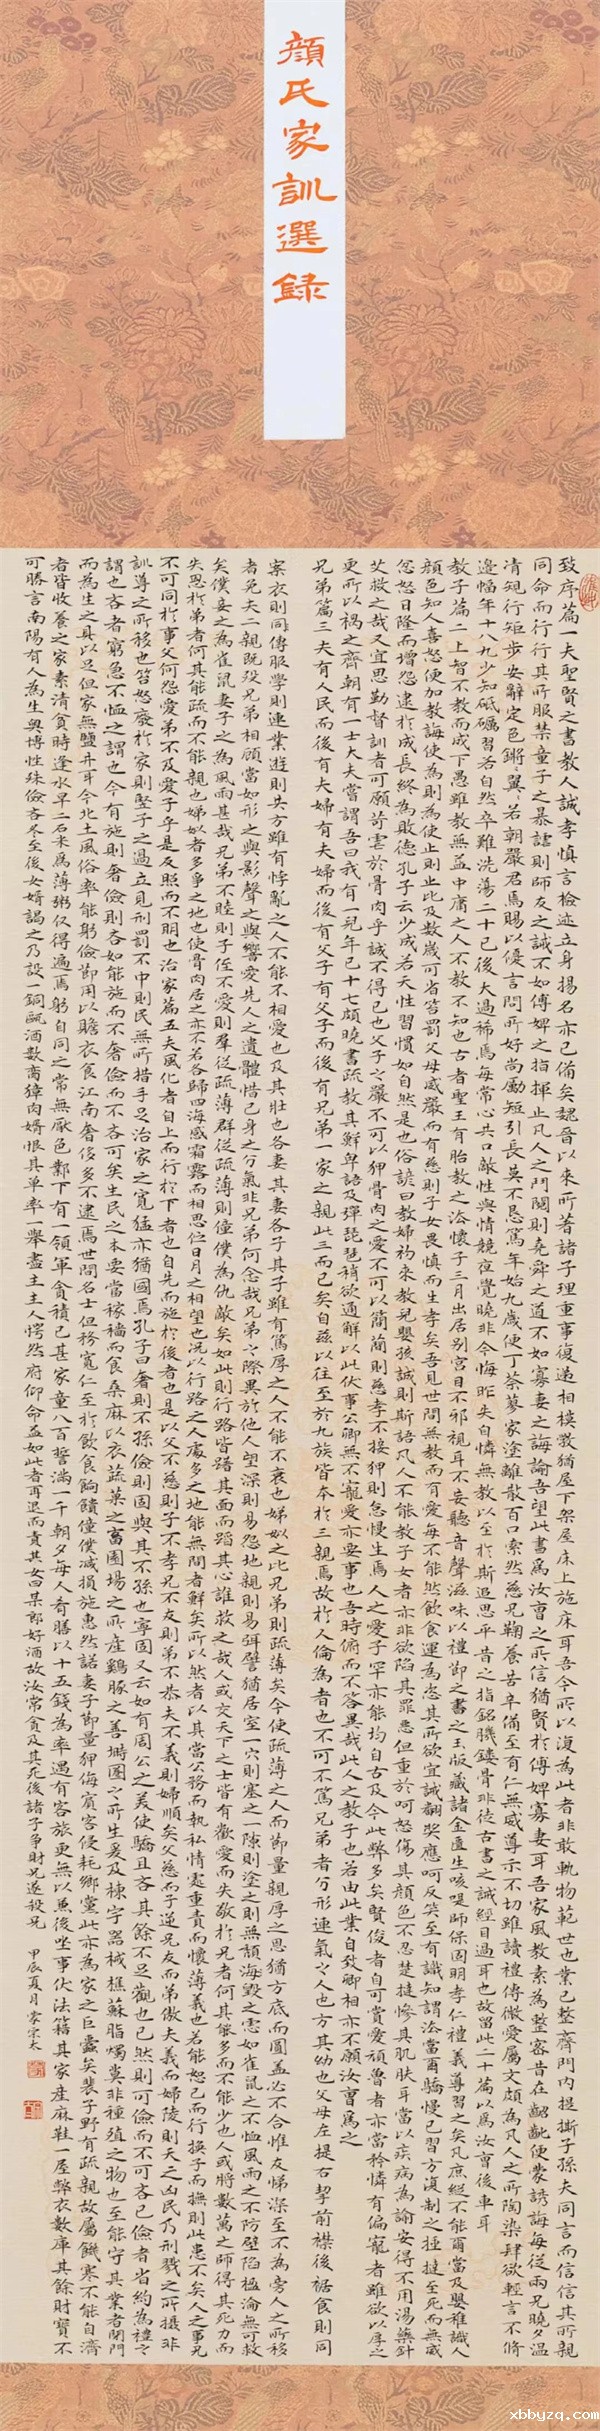 顏氏家訓選錄
致序篇一夫聖賢之書教人誠孝慎言檢迹立身揚名亦已備矣魏晉以來所著諸子理重事復遞相模斆猶屋下架屋床上施床耳吾今所以復為此者非敢軌物範世也業已整齊門內提撕子孫夫同言而信信其所親
同命而行行其所服禁童子之暴謔則師友之誡不如傅婢之指揮止凡人之鬥鬩則堯舜之道不如寡妻之誨諭吾望此書為汝曹之所信猶賢於傅婢寡妻耳吾家風教素為整密昔在齠齔便蒙誘誨每從兩兄曉夕溫
凊規行矩步安辭定色鏘々翼々若朝嚴君焉賜以優言問所好尚勵短引長莫不懇篤年始九歲便丁荼蓼家塗離散百口索然慈兄鞠養苦辛備至有仁無威導示不切雖讀禮傳微愛屬文頗為凡人之所陶染肆欲輕言不脩
邊幅年十八九少知砥礪習若自然卒難洗蕩二十已後大過稀焉每常心共口敵性與情競夜覺曉非今悔昨失自憐無教以至於斯追思平昔之指銘肌鏤骨非徒古書之誡經目過耳也故留此二十篇以為汝曹後車耳
教子篇二上智不教而成下愚雖教無益中庸之人不教不知也古者聖王有胎教之法懷子三月出居別宮目不邪視耳不妄聽音聲滋味以禮節之書之玉版藏諸金匱生咳㖷師保固明孝仁禮義導習之矣凡庶縱不能爾當及嬰稚識人
顏色知人喜怒便加教誨使為則為使止則止比及數歲可省笞罰父母威嚴而有慈則子女畏慎而生孝矣吾見世間無教而有愛每不能然飲食運為恣其所欲宜誡翻獎應呵反笑至有識知謂法當爾驕慢已習方復制之捶撻至死而無威
忿怒日隆而增怨逮於成長終為敗德孔子云少成若天性習慣如自然是也俗諺曰教婦初來教兒嬰孩誠則斯語凡人不能教子女者亦非欲陷其罪惡但重於呵怒傷其顏色不忍楚撻慘其肌膚耳當以疾病為諭安得不用湯藥針
艾救之哉又宜思勤督訓者可願苛虐於骨肉乎誠不得已也父子之嚴不可以狎骨肉之愛不可以簡簡則慈孝不接狎則怠慢生焉人之愛子罕亦能均自古及今此弊多矣賢俊者自可賞愛頑魯者亦當矜憐有偏寵者雖欲以厚之
更所以禍之齊朝有一士大夫嘗謂吾曰我有一兒年已十七頗曉書疏教其鮮卑語及彈琵琶稍欲通解以此伏事公卿無不寵愛亦要事也吾時俯而不答異哉此人之教子也若由此業自致卿相亦不願汝曹為之
兄弟篇三夫有人民而後有夫婦有夫婦而後有父子有父子而後有兄弟一家之親此三而已矣自茲以往至於九族皆本於三親焉故於人倫為者也不可不篤兄弟者分形連氣之人也方其幼也父母左提右挈前襟後裾食則同
案衣則同傳服學則連業遊則共方雖有悖亂之人不能不相愛也及其壯也各妻其妻各子其子雖有篤厚之人不能不衰也娣姒之比兄弟則疏薄矣今使疏薄之人而節量親厚之恩猶方底而圓蓋必不合惟友悌深至不為旁人之所移
者免夫二親既歿兄弟相顧當如形之與影聲之與響愛先人之遺體惜己身之分氣非兄弟何念哉兄弟之際異於他人望深則易怨地親則易弭譬猶居室一穴則塞之一隙則塗之則無頹毀之慮如雀鼠之不恤風雨之不防壁陷楹淪無可救
矣僕妾之為雀鼠妻子之為風雨甚哉兄弟不睦則子侄不愛則群從疏薄群從疏薄則僮僕為仇敵矣如此則行路皆踖其面而蹈其心誰救之哉人或交天下之士皆有歡愛而失敬於兄者何其能多而不能少也人或將數萬之師得其死力而
失恩於弟者何其能疏而不能親也娣姒者多爭之地也使骨肉居之亦不若各歸四海感霜露而相思佇日月之相望也況以行路之人處多爭之地能無間者鮮矣所以然者以其當公務而執私情處重責而懷薄義也若能恕己而行換子而撫則此患不生矣人之事兄
不可同於事父何怨愛弟不及愛子乎是反照而不明也治家篇五夫風化者自上而行於下者也自先而施於後者也是以父不慈則子不孝兄不友則弟不恭夫不義則婦不順矣父慈而子逆兄友而弟傲夫義而婦陵則天之凶民乃刑戮之所攝非
訓導之所移也笞怒廢於家則豎子之過立見刑罰不中則民無所措手足治家之寬猛亦猶國焉孔子曰奢則不孫儉則固與其不孫也寧固又云如有周公之美使驕且吝其餘不足觀也已然則可儉而不可吝已儉者省約為禮之
謂也吝者窮急不恤之謂也今有施則奢儉則吝如能施而不奢儉而不吝可矣生民之本要當稼穡而食桑麻以衣蔬菜之畜園場之所產雞豚之善塒圈之所生爰及棟宇器械樵蘇脂燭莫非種殖之物也至能守其業者閉門
而為生之具以足但家無鹽井耳今北土風俗率能躬儉節用以贍衣食江南奢侈多不逮焉世間名士但務寬仁至於飲食餉饋僮僕減損施惠然諾妻子節量狎侮賓客侵耗鄉黨此亦為家之巨蠹矣裴子野有疏親故屬饑寒不能自濟
者皆收養之家素清貧時逢水旱二石米為薄粥僅得遍焉躬自同之常無厭色鄴下有一領軍貪積已甚家童八百誓滿一千朝夕每人肴膳以十五錢為率遇有客旅更無以兼後坐事伏法籍其家產麻鞋一屋弊衣數庫其餘財寶不
可勝言南陽有人為生奧博性殊儉吝冬至後女婿謁之乃設一銅甌酒數臠獐肉婿恨其單率一舉盡之主人愕然俯仰命益如此者再退而責其女曰某郎好酒故汝常貧及其死後諸子爭財兄遂殺兄
甲辰夏月
xbbyzq.com